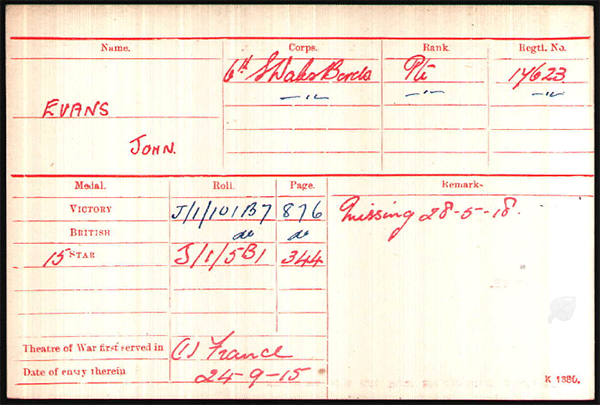 Name. Corps. Rank. Regtl. No.
6th S Wales Borde Pte 17623
EVANS —"— —"— —"—
JOHN.
Medal. Roll. Page. Remarks
VICTORY J/1/101B7 876 Missing 28-5-18.
BRITISH do do
15 STAR J/1/5B1 344
Theatre of War first served in (1) France
Date of entry therein 24-9-15
K 1380.